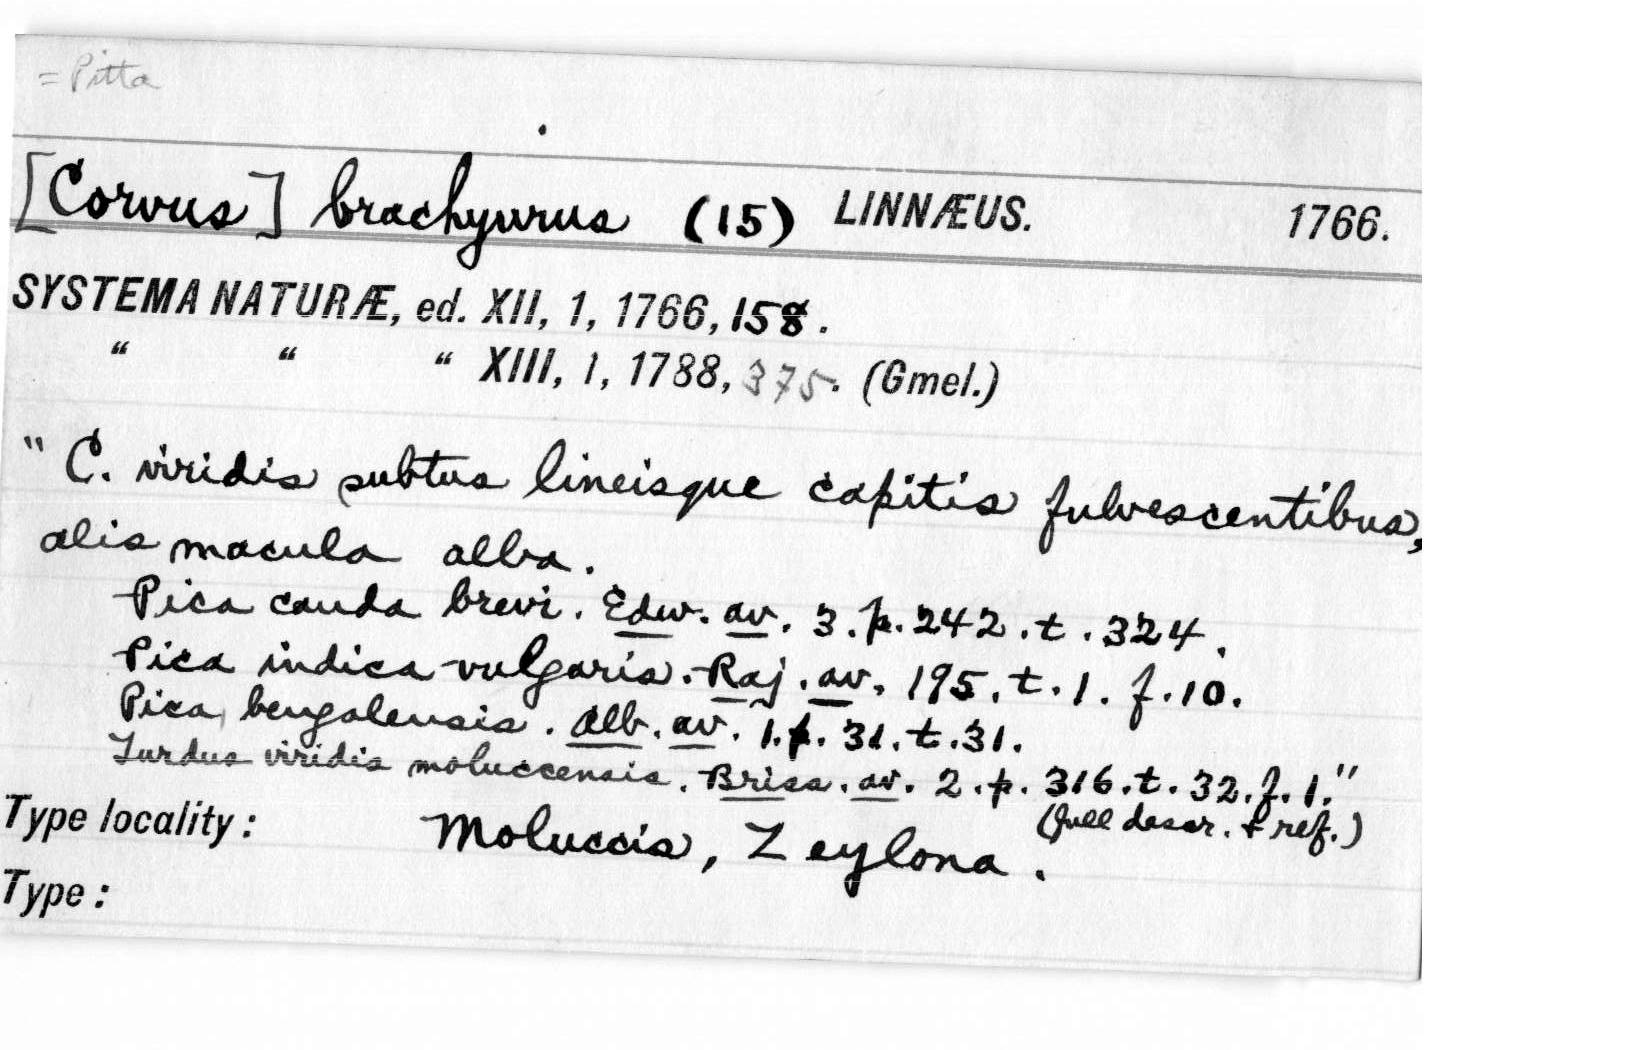 = Pitta
[Corvus] brachyurus (15) LINNÆUS. 1766.
SYSTEMA NATURÆ, ed. XII, 1, 1766, 158.
“ “ “ XIII, 1, 1788, 375. (Gmel.)
" C. viridis subtus lineisque capitis fulvescentibus,
alis macula alba.
Pica cauda brevi. Edw. av. 3. p. 242. t. 324.
Pica indica vulgaris. Raj. av. 195. t. 1. f. 10.
Pica bengalensis. Alb. av. 1. p. 31. t. 31.
Turdus viridis moluccensis. Briss. av. 2. p. 316. t. 32. f. 1."
(full descr. & ref.)
Type locality: Moluccis, Zeylona.
Type: